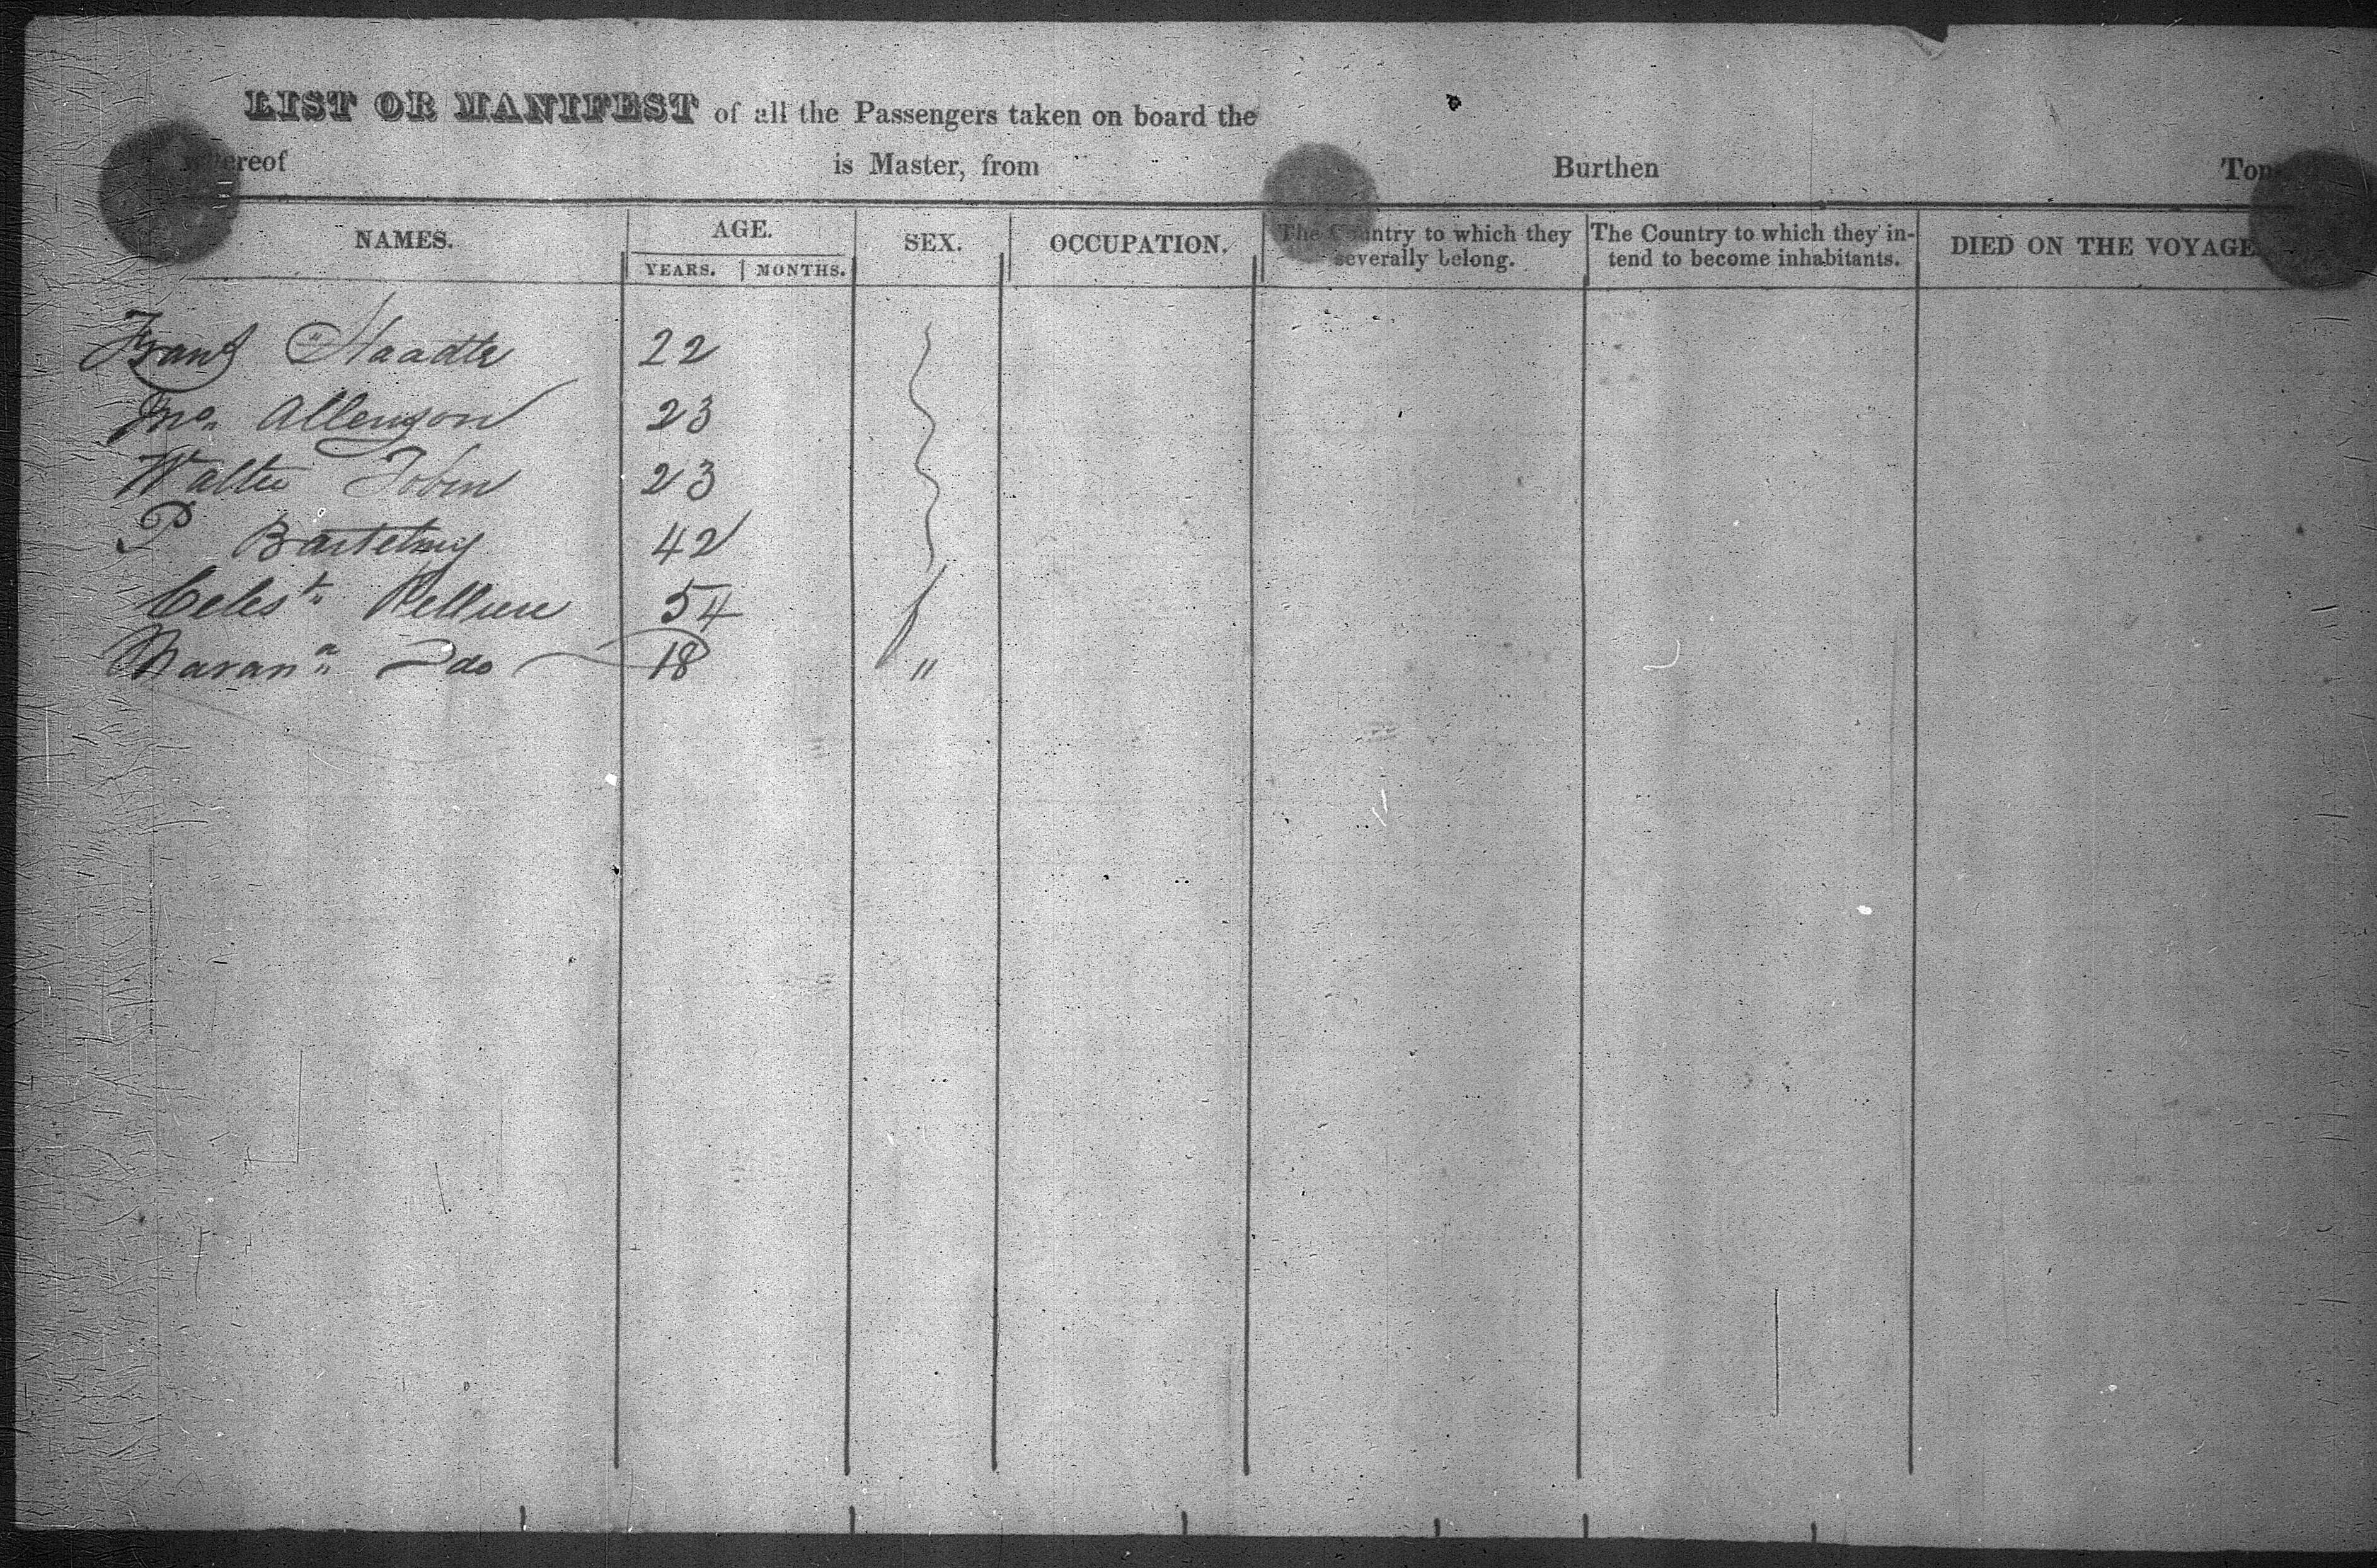 LIST OR MANIFEST of all the Passengers taken on board the
whereof is Master, from Burthen Tons
NAMES. AGE. SEX. OCCUPATION. The Country to which they severally belong. The Country to which they intend to become inhabitants. DIED ON THE VOYAGE
YEARS. MONTHS.
22
Jno. Allenson 23
Walter Tobin 23
P Bartelmy 42
Celest. 54 f
do 18 "